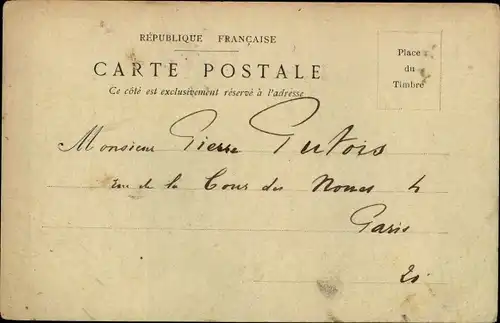 RÉPUBLIQUE FRANÇAISE
CARTE POSTALE
Ce côté est exclusivement réservé à l'adresse
Place
du
Timbre
Monsieur Pierre Dutois
rue de la Cour des Noues 4
Paris